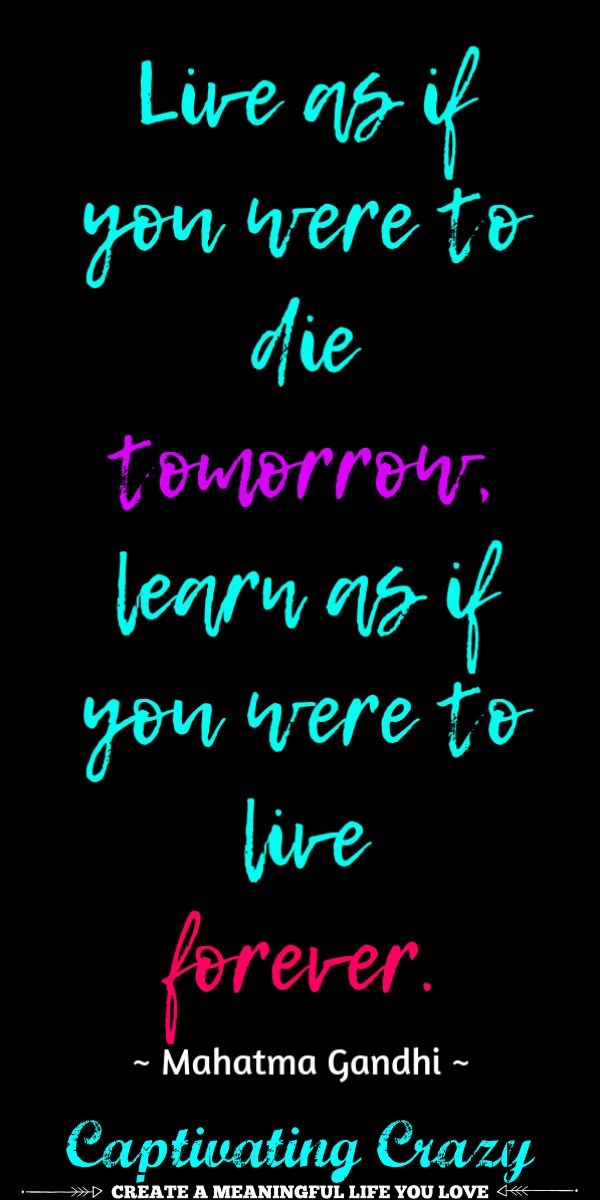 Live as if
you were to
die
tomorrow,
learn as if
you were to
live
forever.
~ Mahatma Gandhi ~
Captivating Crazy
CREATE A MEANINGFUL LIFE YOU LOVE